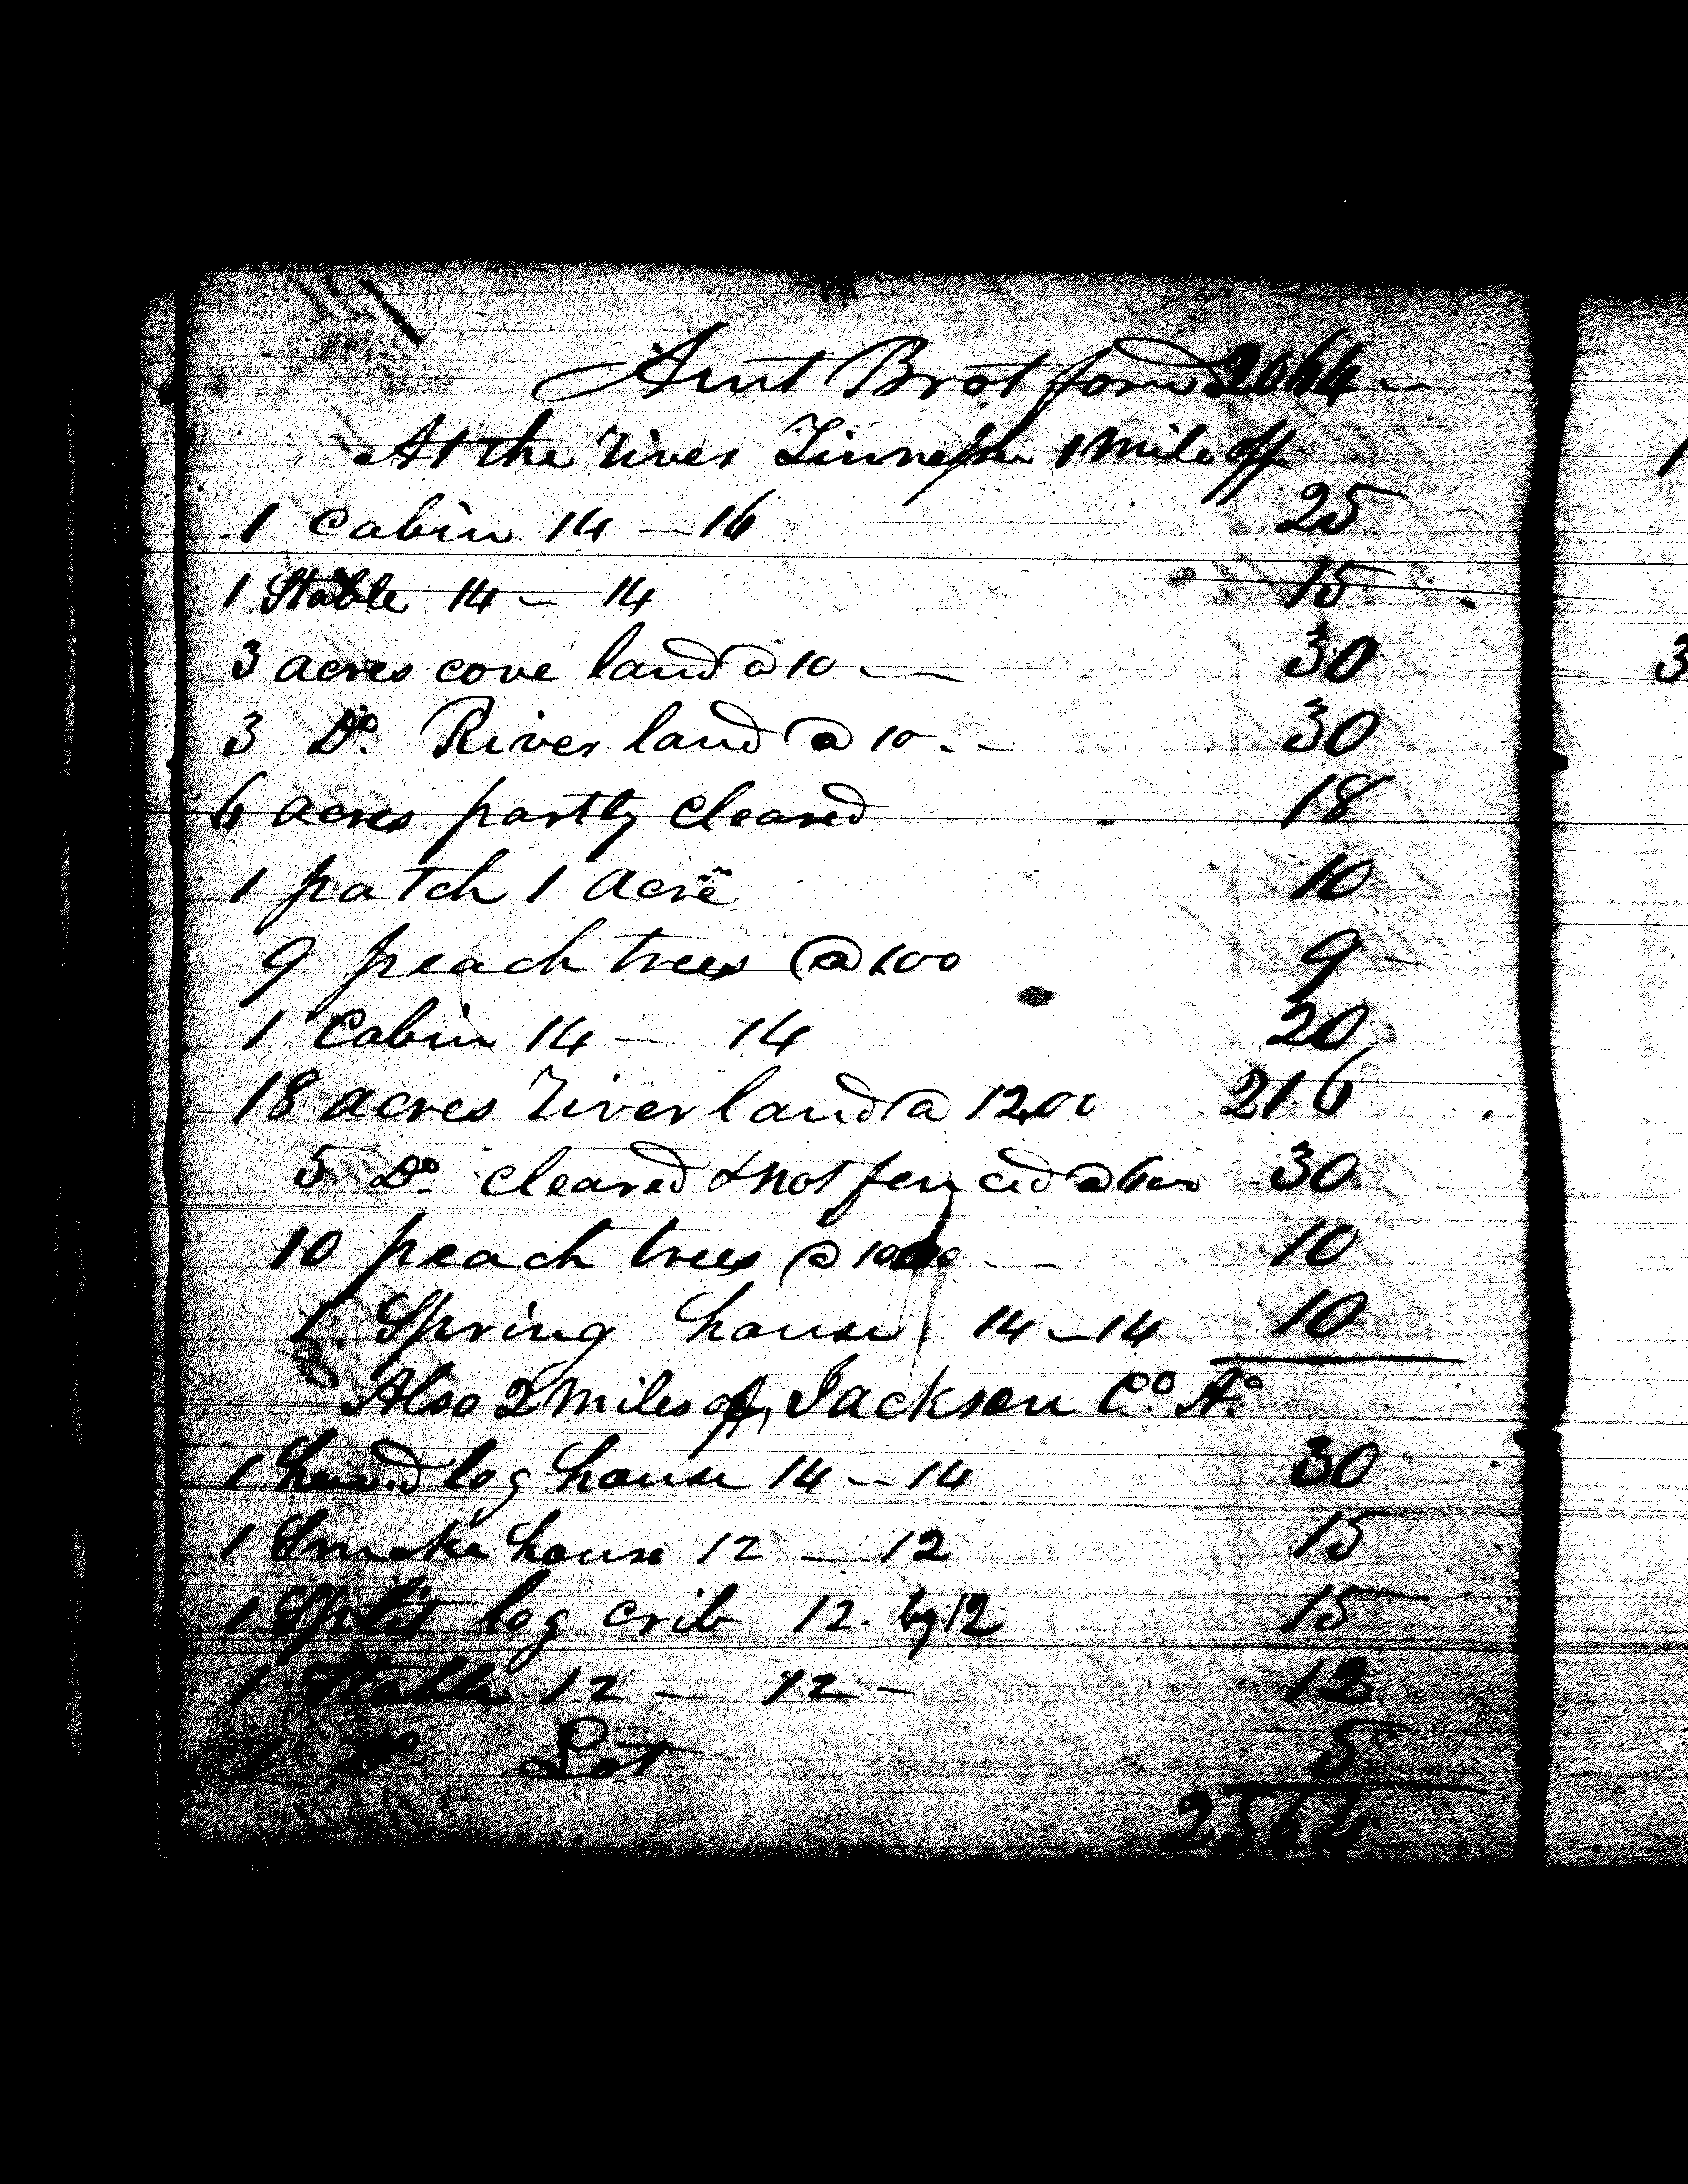 Amt Brot forwd 2064
At the River Tinnessee 1 mile off
1 Cabin 14 — 16 25
1 Stable 14 — 14 15
3 acres cove land @ 10 — 30
3 Do. River land @ 10 . - 30
6 acres partly cleared 18
1 patch 1 acre 10
9 peach trees @ 100 9
1 Cabin 14 — 14 20
18 acres River land @ 1200 216
5 Do. cleared & not fenced @ 600 30
10 peach trees @ 100 — 10
1 Spring house 14 — 14 10
Also 2 miles off, Jackson Co. A.
1 hewed log house 14 — 14 30
1 Smoke house 12 — 12 15
1 Split log crib 12 by 12 15
1 Stable 12 — 12 — 12
1 Do. Lot 5
2564
1
3